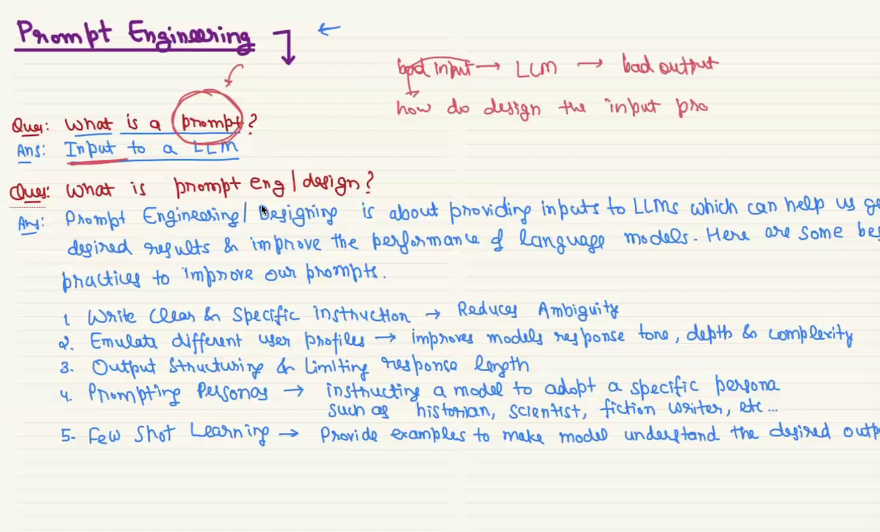 Prompt Engineering
bad input → LLM → bad output
how do design the input pro
Ques: What is a prompt?
Ans: Input to a LLM
Ques: What is prompt eng/design?
Ans: Prompt Engineering/Designing is about providing inputs to LLMs which can help us ge
desired results & improve the performance of language models. Here are some bes
practices to improve our prompts.
1 Write Clear & Specific instruction → Reduces Ambiguity
2. Emulate different user profiles → improves models response tone, depth & complexity
3. Output Structuring & Limiting response length
4. Prompting Personas → instructing a model to adopt a specific persona
such as historian, scientist, fiction writer, etc...
5- Few Shot Learning → Provide examples to make model understand the desired outp